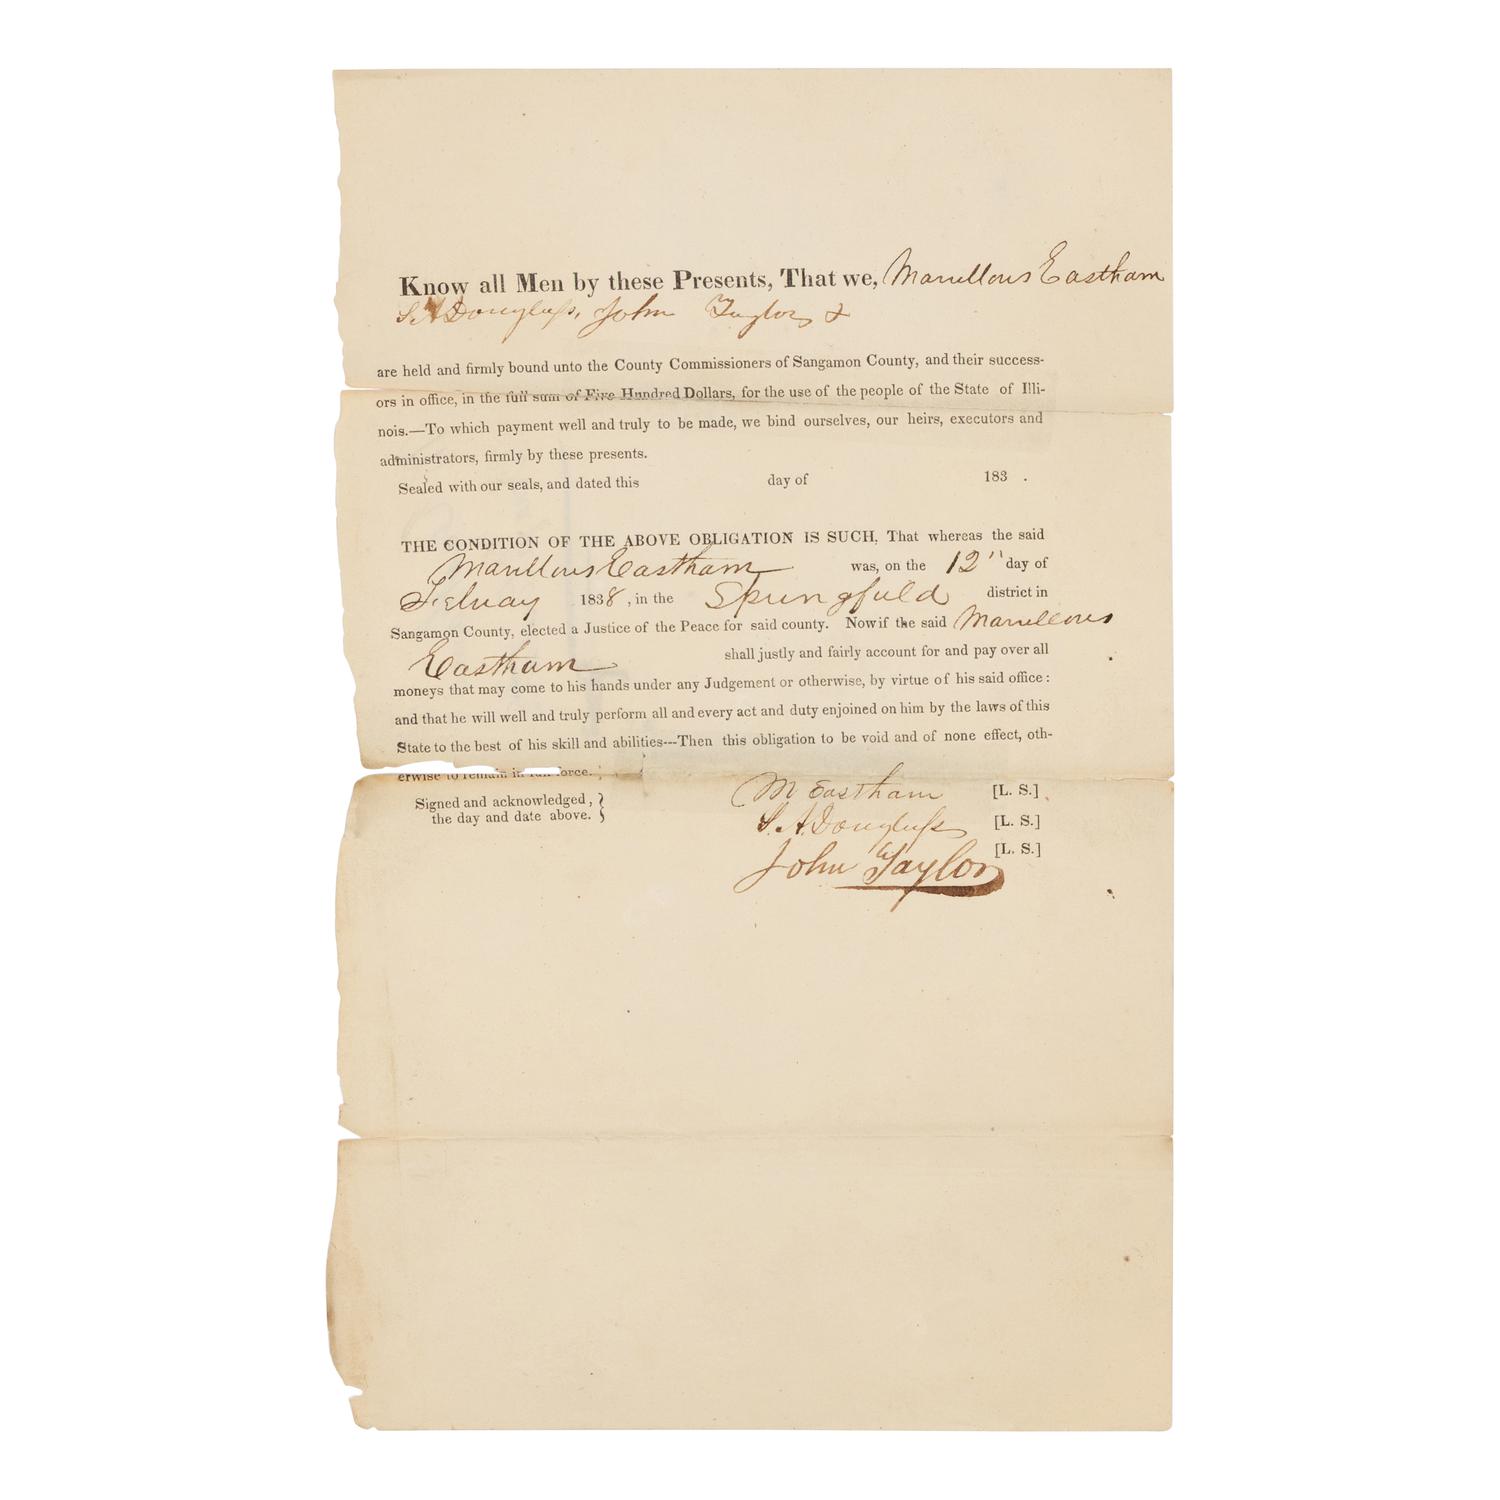 Know all Men by these Presents, That we, Marvellous Eastham
S. A. Douglass, John Taylor &
are held and firmly bound unto the County Commissioners of Sangamon County, and their success-
ors in office, in the full sum of Five Hundred Dollars, for the use of the people of the State of Illi-
nois.—To which payment well and truly to be made, we bind ourselves, our heirs, executors and
administrators, firmly by these presents.
Sealed with our seals, and dated this day of 183 .
THE CONDITION OF THE ABOVE OBLIGATION IS SUCH, That whereas the said
Marvellous Eastham was, on the 12" day of
Februay 1838, in the Springfield district in
Sangamon County, elected a Justice of the Peace for said county. Now if the said Marvellous
Eastham shall justly and fairly account for and pay over all
moneys that may come to his hands under any Judgement or otherwise, by virtue of his said office:
and that he will well and truly perform all and every act and duty enjoined on him by the laws of this
State to the best of his skill and abilities---Then this obligation to be void and of none effect, oth-
erwise to remain in full force.
M Eastham [L. S.]
Signed and acknowledged,
the day and date above. }
S. A. Douglass [L. S.]
John Taylor [L. S.]